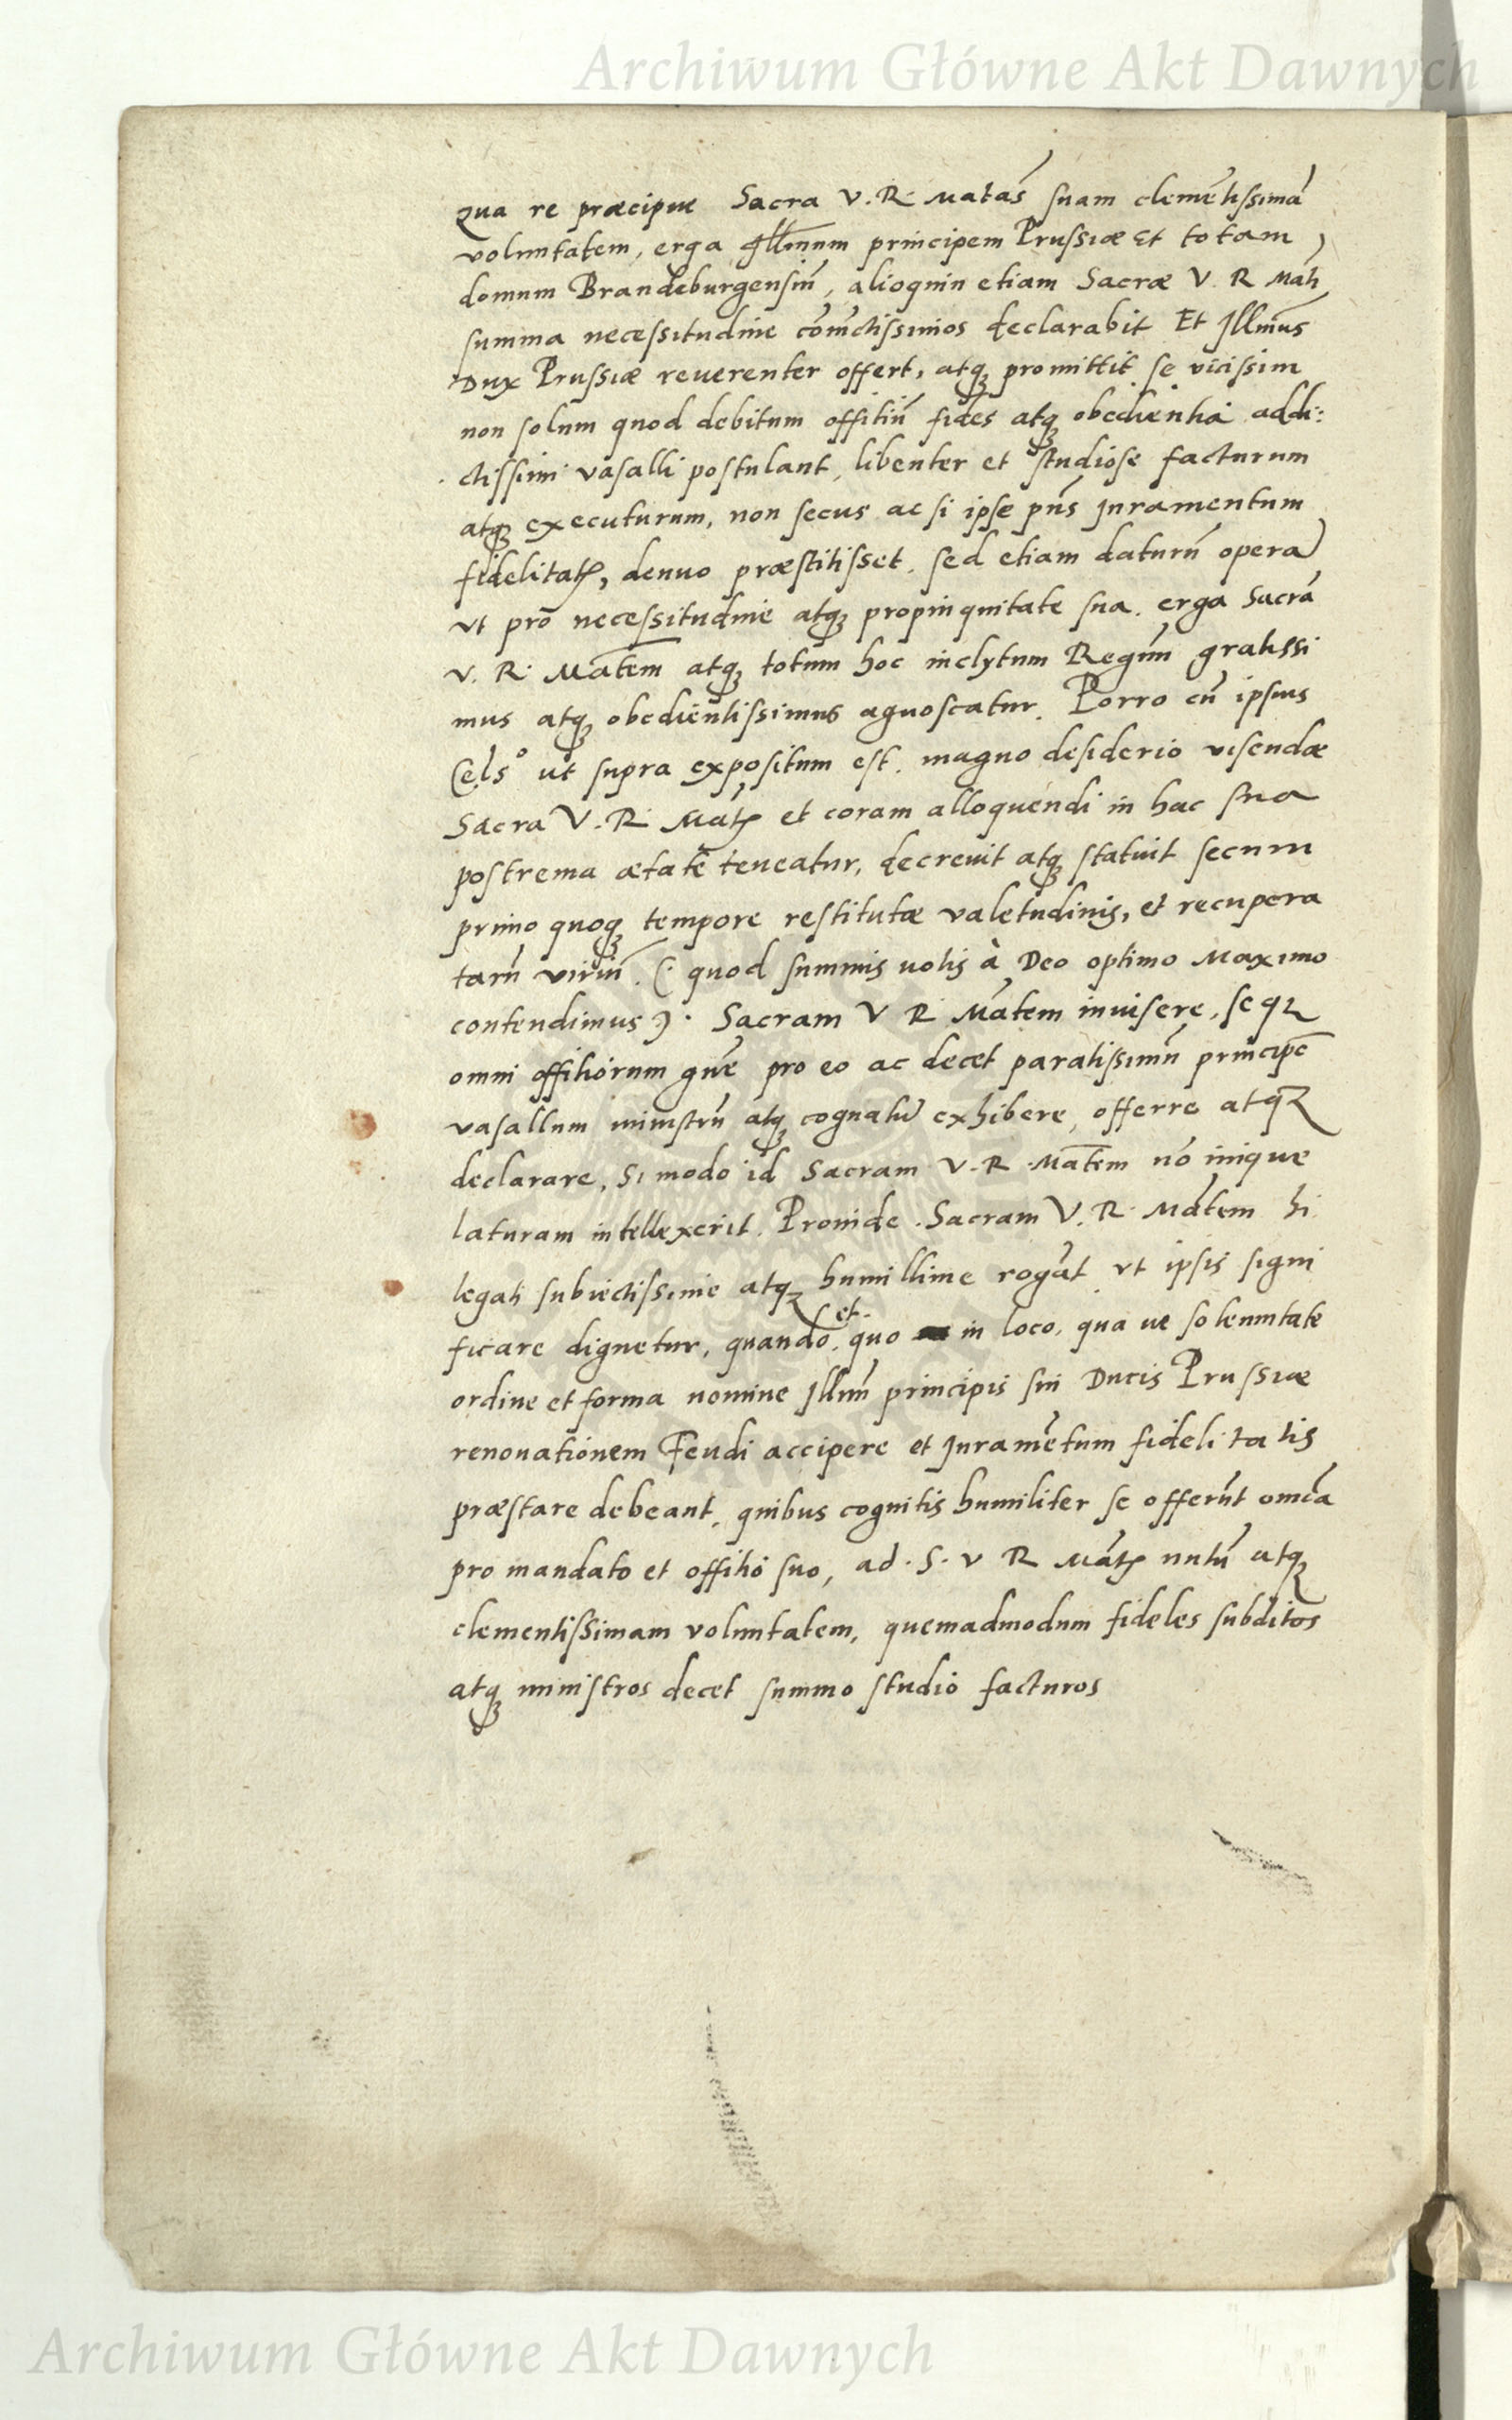 Archiwum Główne Akt Dawnych
qua re præcipue Sacra V. R. Matas suam clementissimā
voluntatem, erga Jllmum principem Prussiæ Et totam
domum Brandeburgensiū, alioquin etiam Sacræ V. R Mati
summa necessitudine cōiūctissimos declarabit Et Jllmus
Dux Prussiæ reuerenter offert, atq; promittit se vicissim
non solum quod debitum offitiū fides atq; obedientia addi:
ctissimi vasalli postulant, libenter et studiose facturum
atq; executurum, non secus ac si ipse pn̄s Juramentum
fidelitatis, denuo præstitisset. sed etiam daturū operā
vt pro necessitudine atq; propinquitate sua. erga Sacrā
V. R. Matem atq; totum hoc inclytum Regnū gratissi
mus atq; obedientissimus agnoscatur. Porro cū ipsius
Cels° ut supra expositum est. magno desiderio visendæ
Sacra V. R. Matis et coram alloquendi in hac sua
postrema ætate teneatur, decreuit atq; statuit secum
primo quoq; tempore restitutæ valetudinis, et recupera
tarū viriū. (: quod summis uotis à Deo optimo Maximo
contendimus :). Sacram V R Matem inuisere, seq;
omni offitiorum gn̄e pro eo ac decet paratissimū principē
vasallum ministrū atq; cognatū exhibere, offerre atq;
declarare, Si modo id Sacram V. R. Matem nō inique
laturam intellexerit. Proinde. Sacram V. R. Matem hi
legati subiectissime atq; humillime rogāt vt ipsis signi
ficare dignetur, quando. et quo in loco. qua ue solennitate
ordine et forma nomine Jllmi principis sui Ducis Prussiæ
renouationem Feudi accipere et Juramētum fidelitatis
præstare debeant, quibus cognitis humiliter se offerūt omīa
pro mandato et offitio suo, ad. S. V R Matis nutū atq;
clementissimam voluntatem, quemadmodum fideles subditos
atq; ministros decet summo studio facturos
Archiwum Główne Akt Dawnych